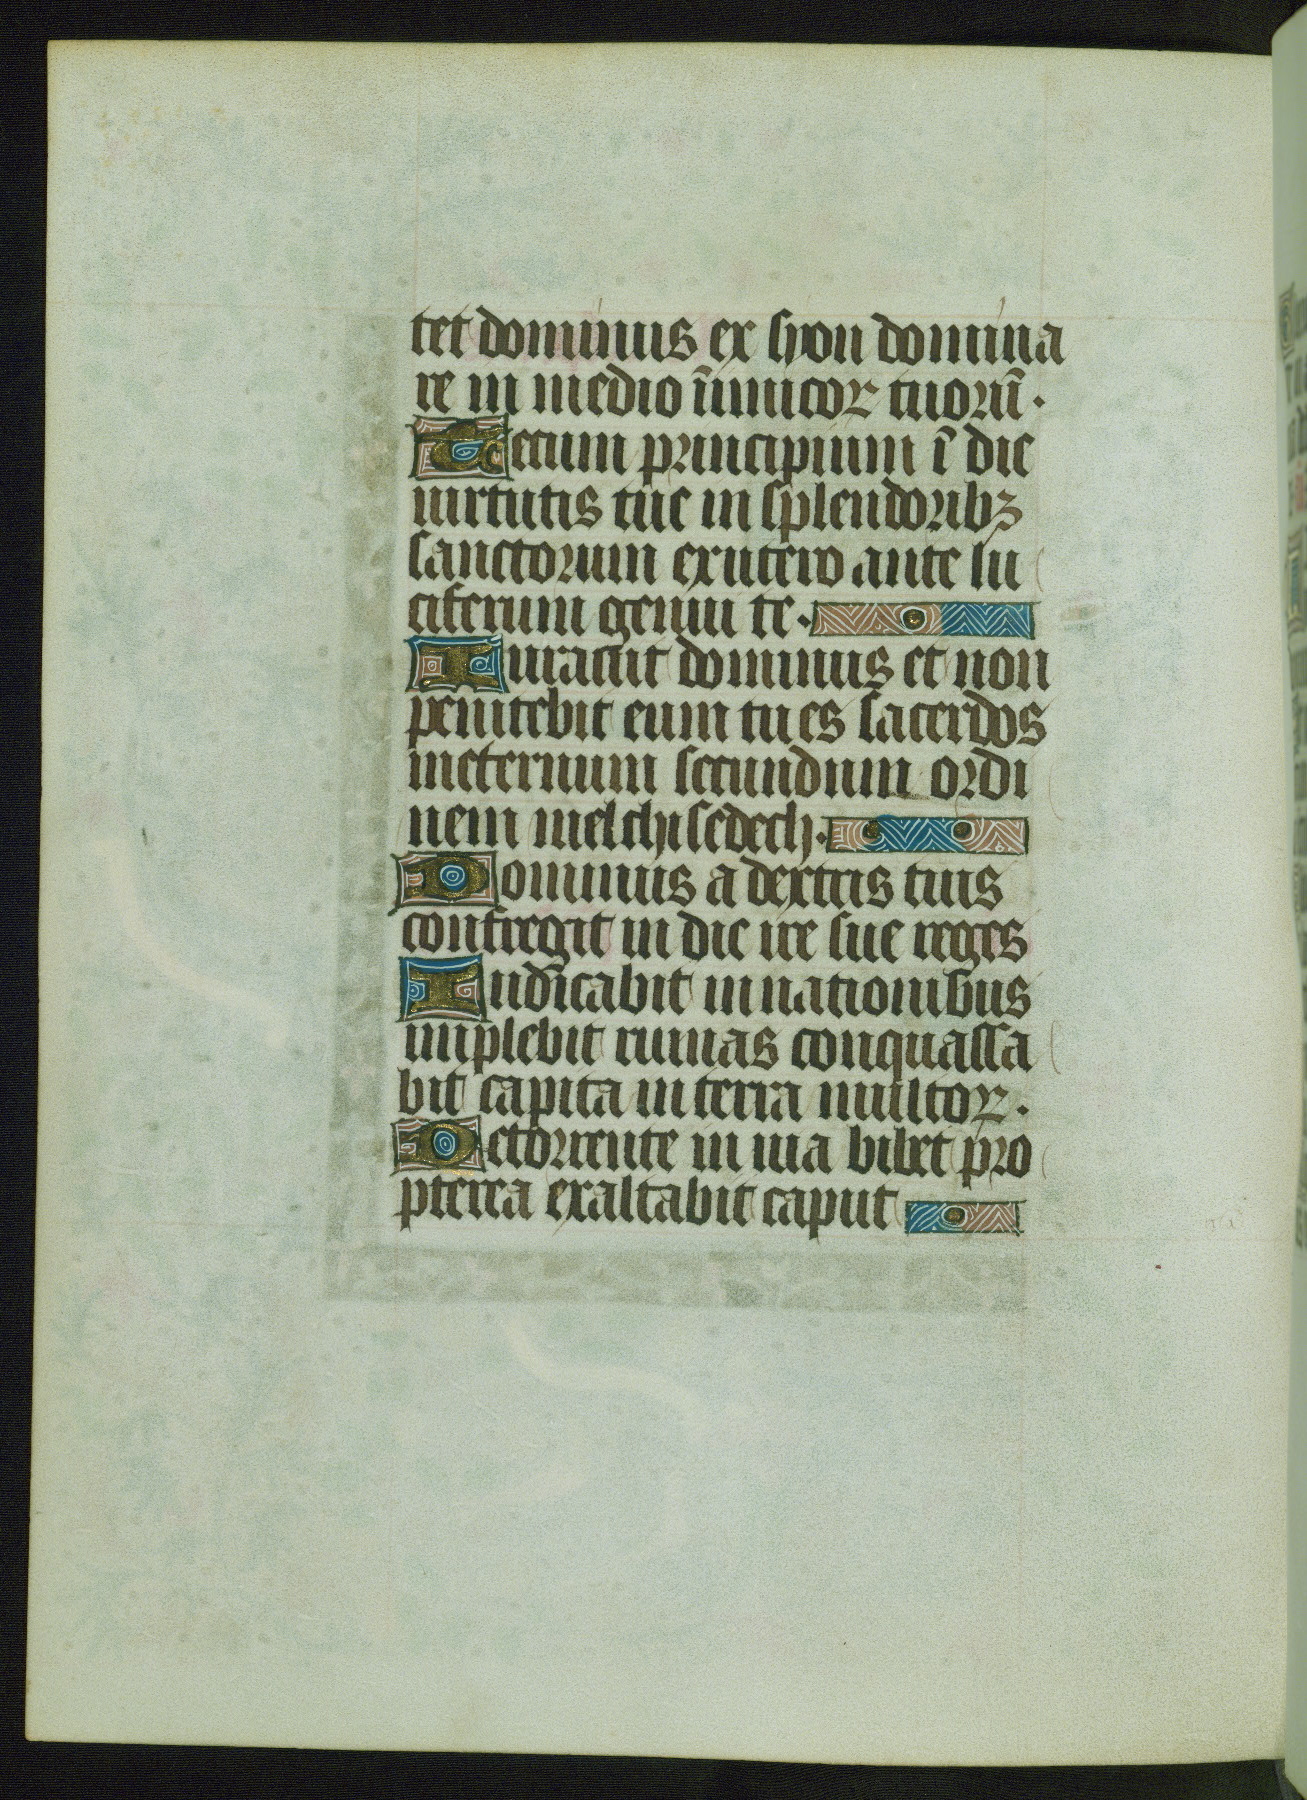 tet dominus ex syon domina
re in medio ĩimicoꝝ tuorũ.
Tecum principium ĩ die
uirtutis tue in splendoribꝫ
sanctorum ex utero ante lu
ciferum genui te.
Iurauit dominus et non
penitebit eum tu es sacerdos
ineternum secundum ordi
nem melchisedech.
Dominus a dextris tuis
confregit in die ire sue reges
Iudicabit in nationibus
implebit ruinas conquassa
bit capita in terra multoꝝ.
De torrente in uia bibet pro
pterea exaltabit caput